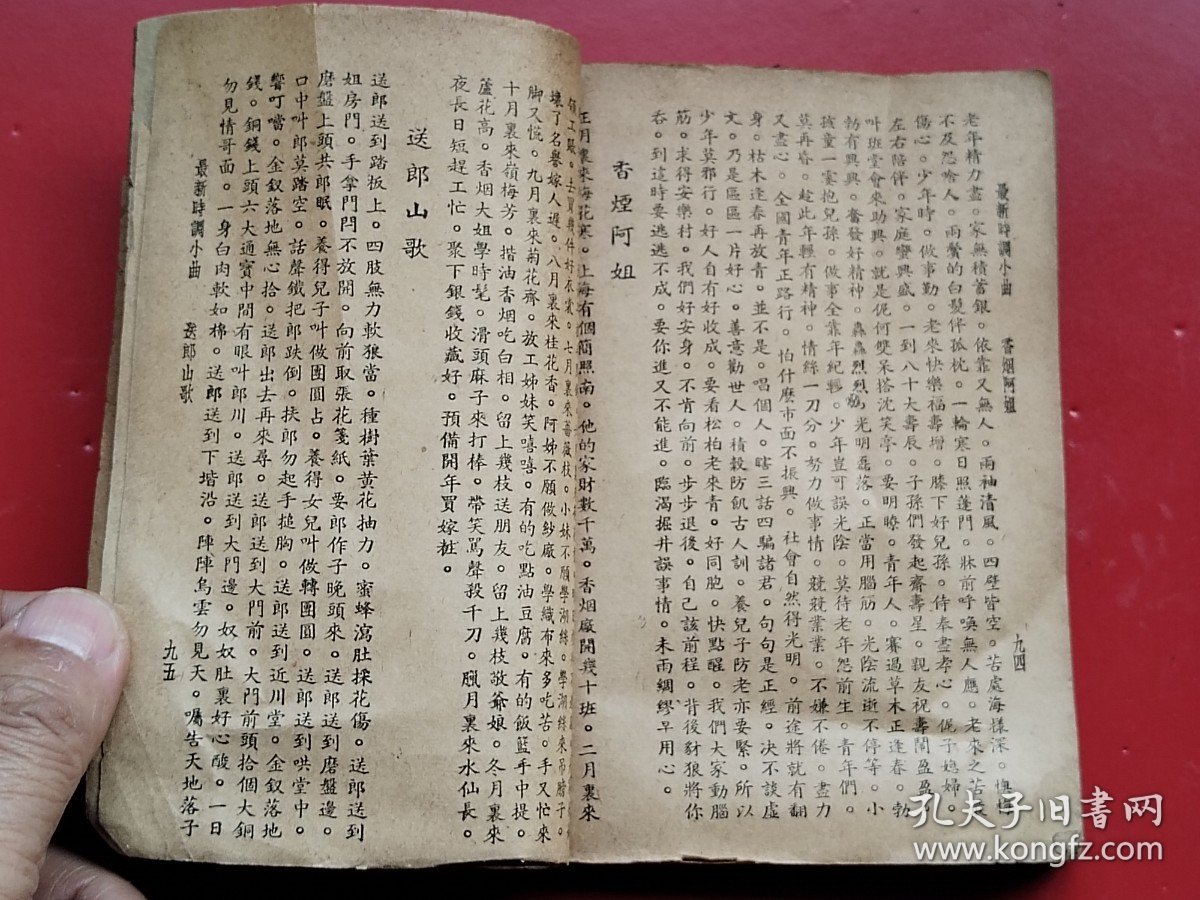 最新時調小曲　香烟阿姐　九四
老年精力盡。家無積蓄銀。依靠又無人。兩袖清風。四壁皆空。苦處海樣深。
不及怨喻人。兩鬢的白髮伴孤枕。一輪寒日照蓬門。牀前呼喚無人應。老來之苦
傷心。少年時。做事勤。老來快樂福壽增。膝下好兒孫。侍奉盡孝心。伲子媳婦
左右陪伴。家庭變興盛。一到八十大壽辰。子孫們發起齋壽星。親友祝壽鬧盈盈
叫班堂會來助興。就是伲何雙呆搭沈笑亭。要明瞭。青年人。賽過草木正逢春。勃
勃有興興。奮發好精神。轟轟烈烈。光明磊落。正當用腦筋。光陰流逝不停等。小
孩童一霎抱兒孫。做事全靠年紀輕。少年豈可誤光陰。莫待老年怨前生。青年們。
莫再昏。趁此年輕有精神。情絲一刀分。努力做事情。競競業業。不嫌不倦。盡力
又盡心。全國青年正路行。怕什麽市面不振興。社會自然得光明。前途將就有翻
身。枯木逢春再放青。並不是。唱個人。瞎三話四騙諸君。句句是正經。决不談虛
文。乃是區區一片好心。善意勸世人。積穀防飢古人訓。養兒子防老亦要緊。所以
少年莫邪行。好人自有好收成。要看松柏老來青。好同胞。快點醒。我們大家動腦
筋。求得安樂村。我們好安身。不肯向前。步步退後。自己該前程。背後豺狼將你
吞。到這時要逃逃不成。要你進又不能進。臨渴掘井誤事情。未雨綢繆早用心。
香煙阿姐
正月裏來梅花寒。上海有個簡照南。他的家財數千萬。香烟廠開幾十班。二月裏來
七月裏來薔薇枝。小妹不願學湖絲。學湖絲來吊膀子。
壞了名譽嫁人遲。八月裏來桂花香。阿姊不願做紗廠。學織布來多吃苦。手又忙來
脚又慌。九月裏來菊花齊。放工姊妹笑嘻嘻。有的吃點油豆腐。有的飯籃手中提。
十月裏來嶺梅芳。揩油香烟吃白相。留上幾枝送朋友。留上幾枝敬爺娘。冬月裏來
蘆花高。香烟大姐學時髦。滑頭麻子來打棒。帶笑駡聲殺千刀。臘月裏來水仙長。
夜長日短趕工忙。聚下銀錢收藏好。預備開年買嫁粧。
送郎山歌
送郎送到踏板上。四肢無力軟狼當。種樹葉黃花抽力。蜜蜂瀉肚採花傷。送郎送到
姐房門。手拿門閂不放開。向前取張花箋紙。要郎作子晚頭來。送郎送到磨盤邊。
磨盤上頭共郎眠。養得兒子叫做團團占。養得女兒叫做轉團圓。送郎送到哄堂中。
口中叫郎莫踏空。話聲鐵把郎跌倒。扶郎勿起手搥胸。送郎送到近川堂。金釵落地
響叮噹。金釵落地無心拾。送郎出去再來尋。送郎送到大門前。大門前頭拾個大銅
錢。銅錢上頭六大通寳中間有眼叫郎川。送郎送到大門邊。奴奴肚裏好心酸。一日
勿見情哥面。一身白肉軟如棉。送郎送到下堦沿。陣陣烏雲勿見天。囑告天地落子
最新時調小曲　送郎山歌　九五
孔夫子旧書网
www.kongfz.com